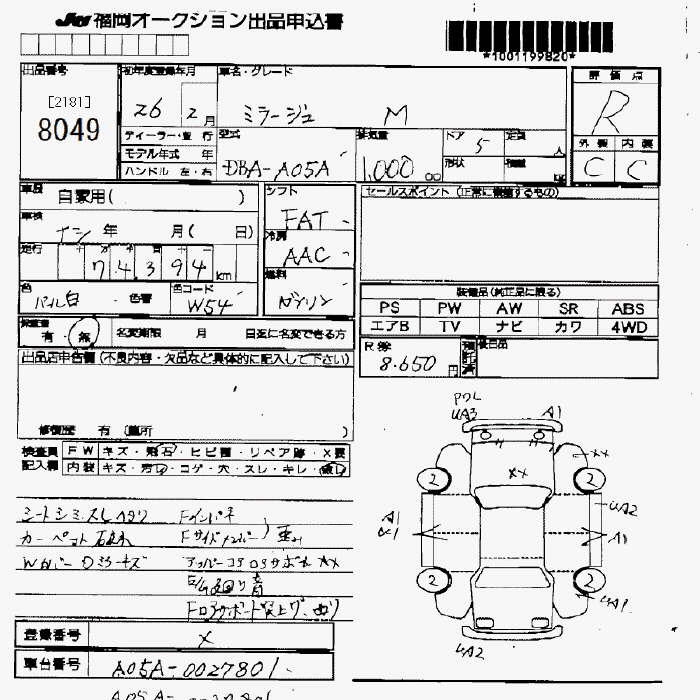 JU 福岡オークション出品申込書
*1001199820*
出品番号
[2181]
8049
初年度登録年月
26 2月
車名・グレード
ミラージュ M
評価点
R
外装 内装
C C
ディーラー・並行
モデル年式 年
ハンドル 左・右
型式
DBA-A05A
排気量
1,000 cc
ドア
5
形状
定員 人
積載 kg
車歴
自家用( )
車検
ナシ 年 月( 日)
走行
十 万 千 百 十 一
74,394 km
色
パール白 色替
色コード
W54
シフト
FAT
冷房
AAC
燃料
ガソリン
セールスポイント (正常に機能するもの)
装備品(純正品に限る)
PS PW AW SR ABS
エアB TV ナビ カワ 4WD
保証書
有・無
名変期限 月 日迄に名変できる方
R券
8.650 円
預託済
後日品
出品店申告欄(不良内容・欠品など具体的に記入して下さい)
修復歴 有 (箇所 )
検査員
記入欄
FW キズ・飛石・ヒビ・リペア跡・X要
内装 キズ・汚れ・コゲ・穴・スレ・キレ・
シートシミ、スレ
Fインパネ
カーペット
Fサイドメンバー
Wカバー
アッパー コア ロアサポート XX
E/G 回り音
登録番号
X
車台番号
A05A-0027801
UA3
A1
XX
XX
2
2
UA2
A1
A1
2
2
UA1
UA2